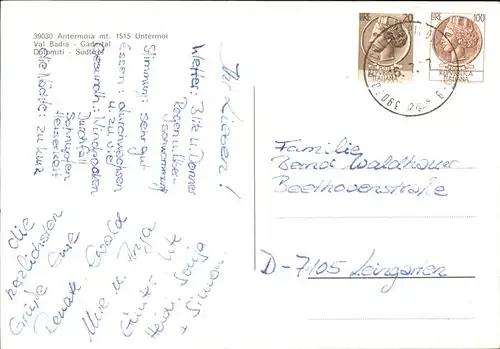 39030 Antermoia mt. 1515 Untermoi
Val Badia - Gadertal
Dolomiti - Südtirol
Ihr Lieben!
Wetter: Blitz u. Donner
Regen u. Über-
schwemmung
Stimmung: sehr gut
Essen: durchwachsen
u. zu viel
Gesundh.: Windpocken
Durchfall
Schnupfen
Heiserkeit
die Nächte: zu kurz
die
herzlichsten
Grüße Eure
Renate, Carola
Uwe u. Anja
Günter, Ute
Heidi, Sonja
+ Simon.
LIRE 20
REPUBBLICA
ITALIANA
LIRE 100
REPUBBLICA
ITALIANA
Familie
Bernd Waldhauer
Beethovenstraße
D-7105 Leingarten